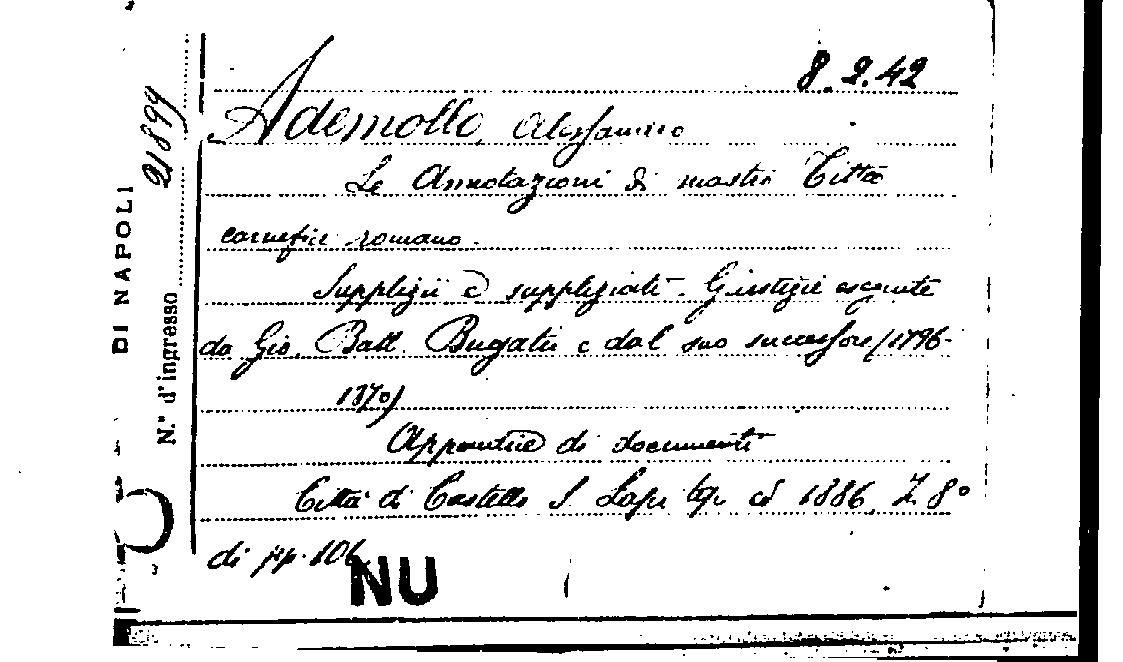 8.2.42
Ademollo, Alessandro
Le Annotazioni di mastro Titta
carnefice romano.
Supplizii e suppliziati. Giustizie eseguite
da Gio. Batt. Bugatti e dal suo successore (1796-
1870)
Appendice di documenti
Città di Castello S. Lapi tip. ed 1886. 8º
di pp. 106
NU
DI NAPOLI
N.º d'ingresso 21899